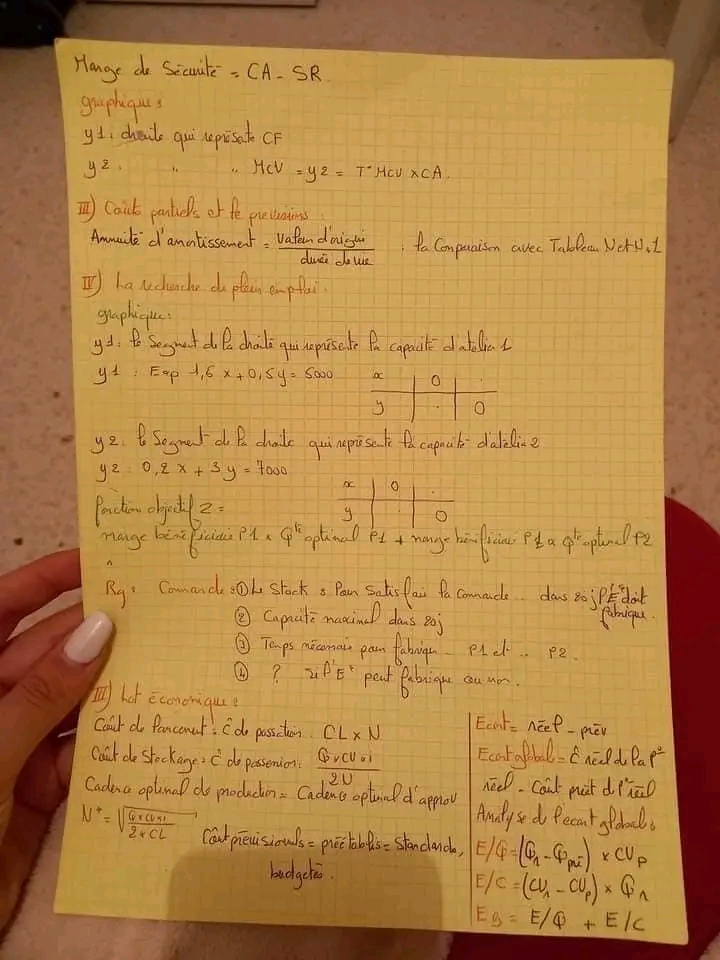 Marge de Sécurité = CA - SR
graphique :
y1 : droite qui représente CF
y2 . " " McV = y2 = T* McV x CA.
III) Coûts partiels et le previsions :
Annuité d'amortissement = valeur d'origin / durée de vie . la Comparaison avec Tableau N et N+1
IV) La recherche du plein emploi.
graphique :
y1 : le Segment de la droite qui représente la capacité d'atelier 1
y1 : Exp 1,5 x + 0,5 y = 5000
x | 0 | .
y | . | 0
y2 : le Segment de la droite qui représente la capacité d'atelier 2
y2 : 0,2 x + 3 y = 7000
x | 0 | .
y | . | 0
fonction objectif Z =
marge bénéficiaire P1 x Qté optimal P1 + marge bénéficiaire P2 x Qté optimal P2
Rq : Commande : ① Le Stock : Pour Satisfair la Comande .. dans 20j l'Ese doit
fabrique.
② Capacité maximal dans 20j
③ Temps nécessaie pour fabriqu... P1 et .. P2.
④ ? si l'Ese peut fabrique ou non.
III) Lot économique :
Coût de lancement = C de passation : CL x N
Coût de Stockage = C de possession : Q x CU x i / 2N
Cadence optimal de production = Cadence optimal d'approv
N* = √ Q x CU x i / 2 x CL
Coût prévisionnels = préétablis = Standards,
budgetés.
Ecart = réel - prév
Ecart global = C réel de la P°
réel - Coût préét de P° réel
Analyse de l'écart global :
E/Q = (Qr - Qpré) x CUp
E/C = (CUr - CUp) x Qr
Eg = E/Q + E/C